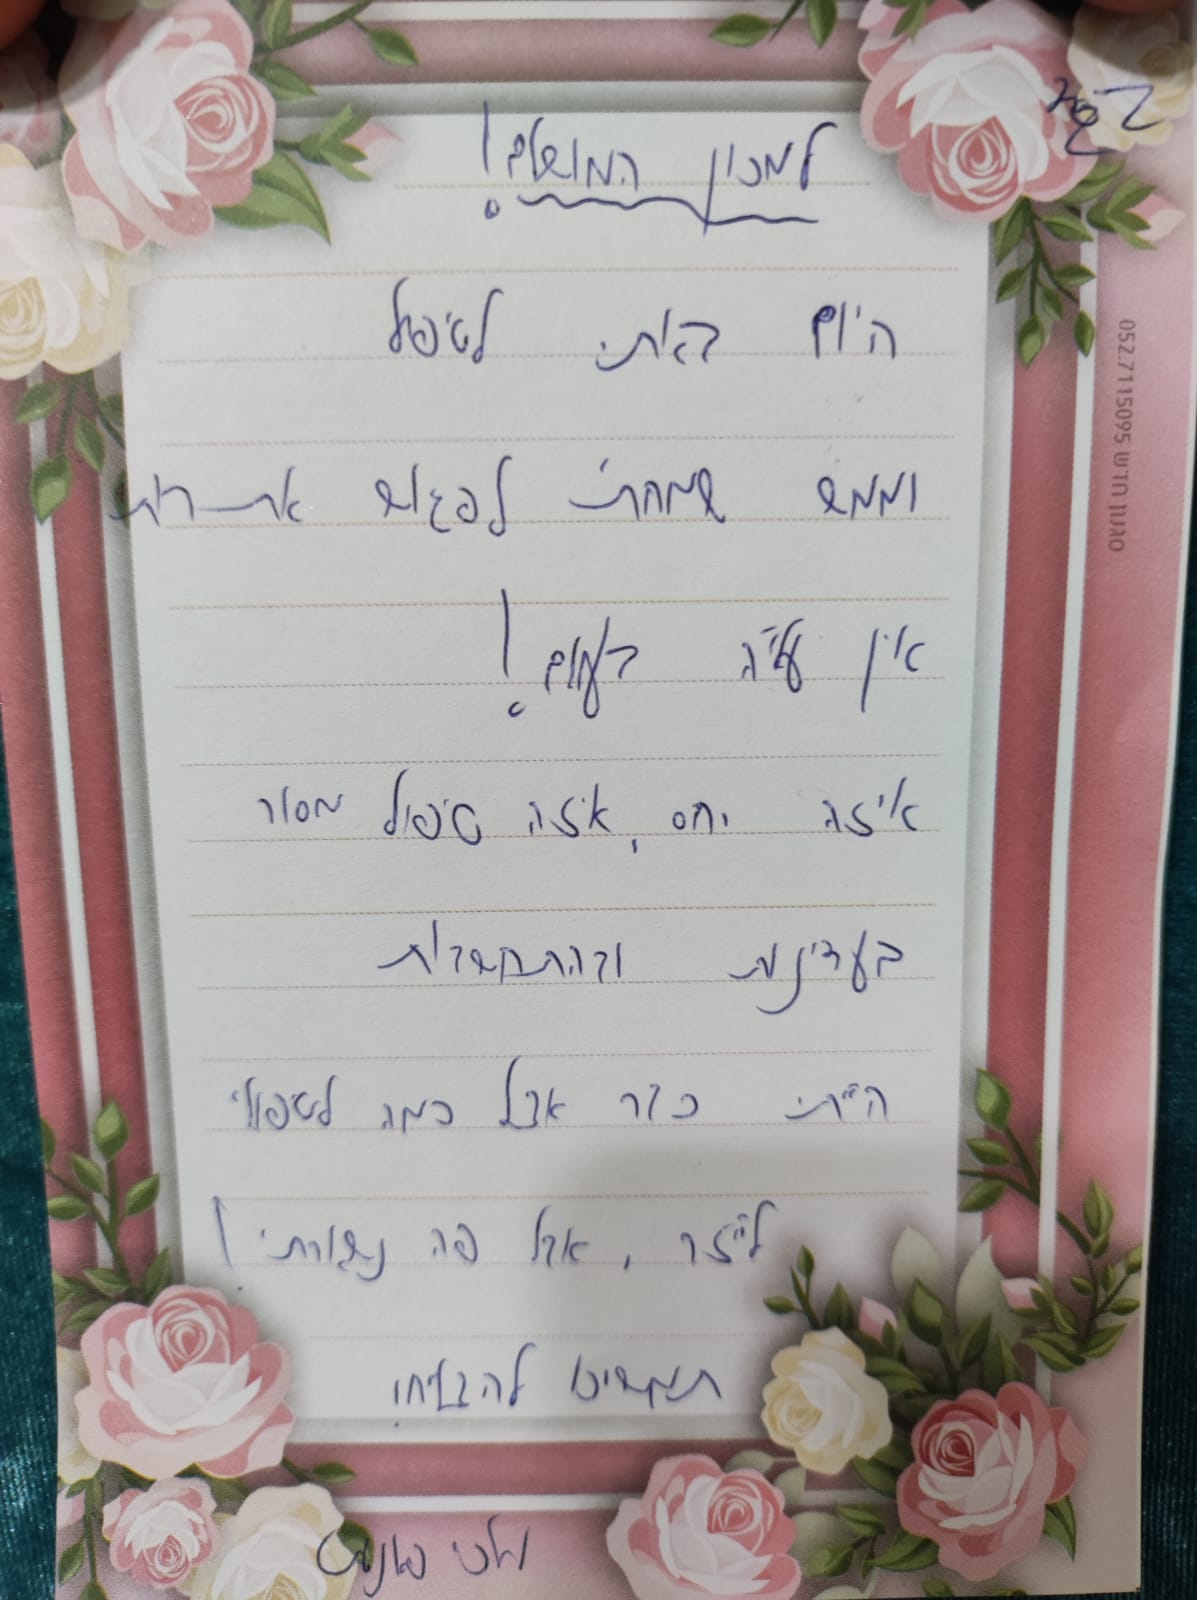 בס"ד
למכון המושלם!
היום באתי לטיפול
וממש שמחתי לפגוש את רות
אין עליה בעולם!
איזה יחס, איזה טיפול מסור
בעדינות ובהתקשרות
הייתי כבר אצל כמה לטיפולי
לייזר, אבל פה נשארתי!
תמשיכו להצליח!
סגנון חדש 052.7115095